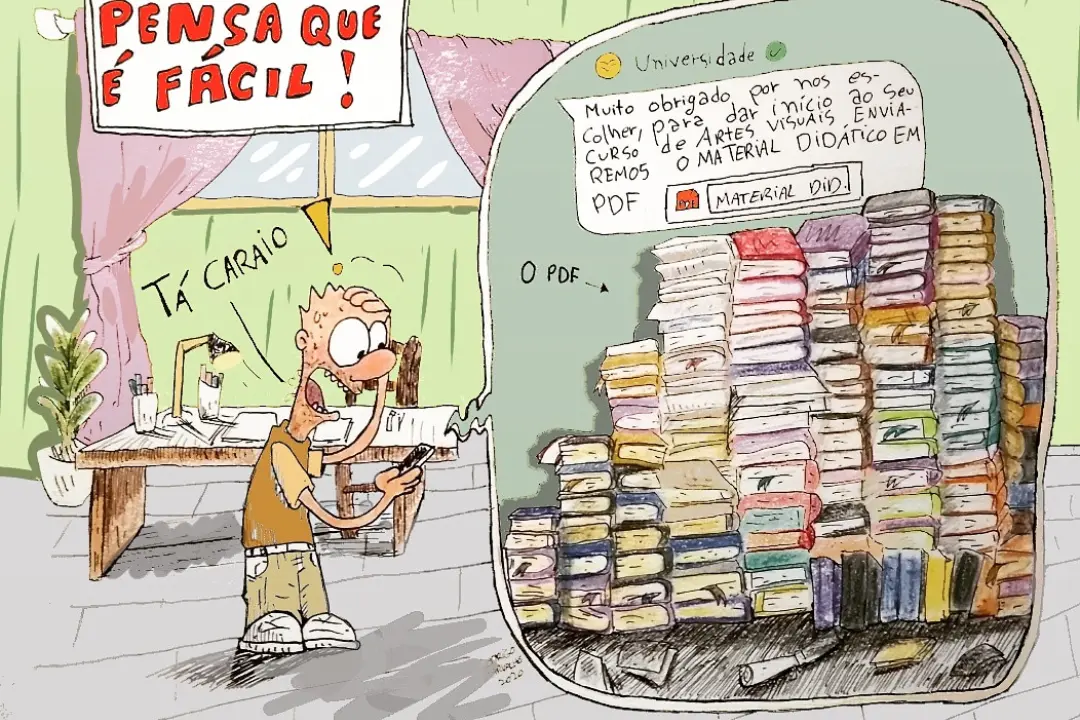 PENSA QUE
É FÁCIL!
Universidade
Muito obrigado por nos es-
colher, para dar início ao seu
curso de ARTES VISUAIS ENVIA-
REMOS O MATERIAL DIDÁTICO EM
PDF
MATERIAL DID.
O PDF
TÁ CARAIO
2020